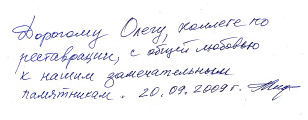 Дорогому Олегу, коллеге по
реставрации, с общей любовью
к нашим замечательным
памятникам. 20.09.2009г.